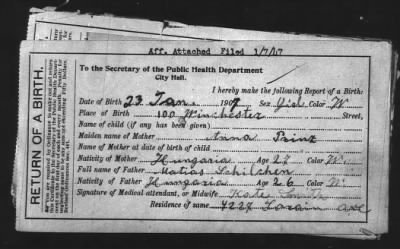 Aff. Attached Filed 1/7/47
To the Secretary of the Public Health Department
City Hall.
I hereby make the following Report of a Birth:
Date of Birth 23 Jan. 190 Sex Girl Color W
Place of Birth 100 Winchester Street,
Name of child (if any has been given)
Maiden name of Mother Anna Prinz
Name of Mother at date of birth of child
Nativity of Mother Hungaria Age 27 W.
Full name of Father Matias Schilchen
Nativity of Father Hungaria Age 26 W
Signature of Medical attendant, or Midwife Kate
Residence of same 4227 Ave
RETURN OF A BIRTH.